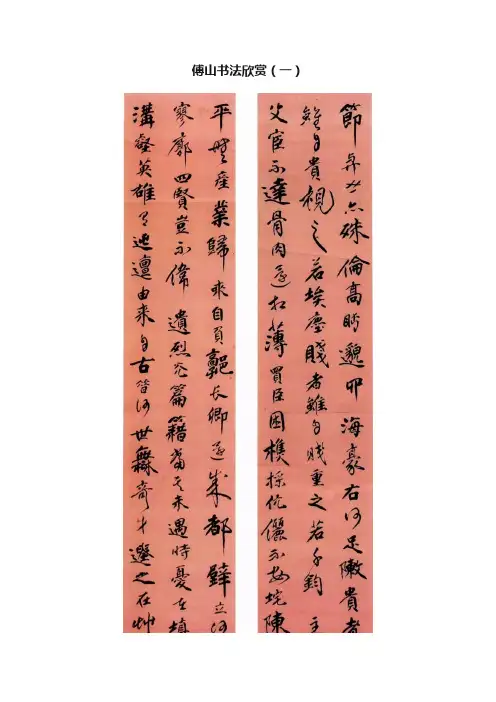 傅山书法欣赏（一）
節與世亦殊倫高眄邈四海豪右何足陳貴者
雖自貴視之若埃塵賤者雖自賤重之若千鈞主
父宦不達骨肉還相薄買臣困樵採伉儷不安宅陳
平無産業歸來自負郭長卿還成都壁立何
寥廓四賢豈不偉遺烈光篇籍當其未遇時憂在填
溝壑英雄有迍邅由來自古昔何世無奇才遺之在艸